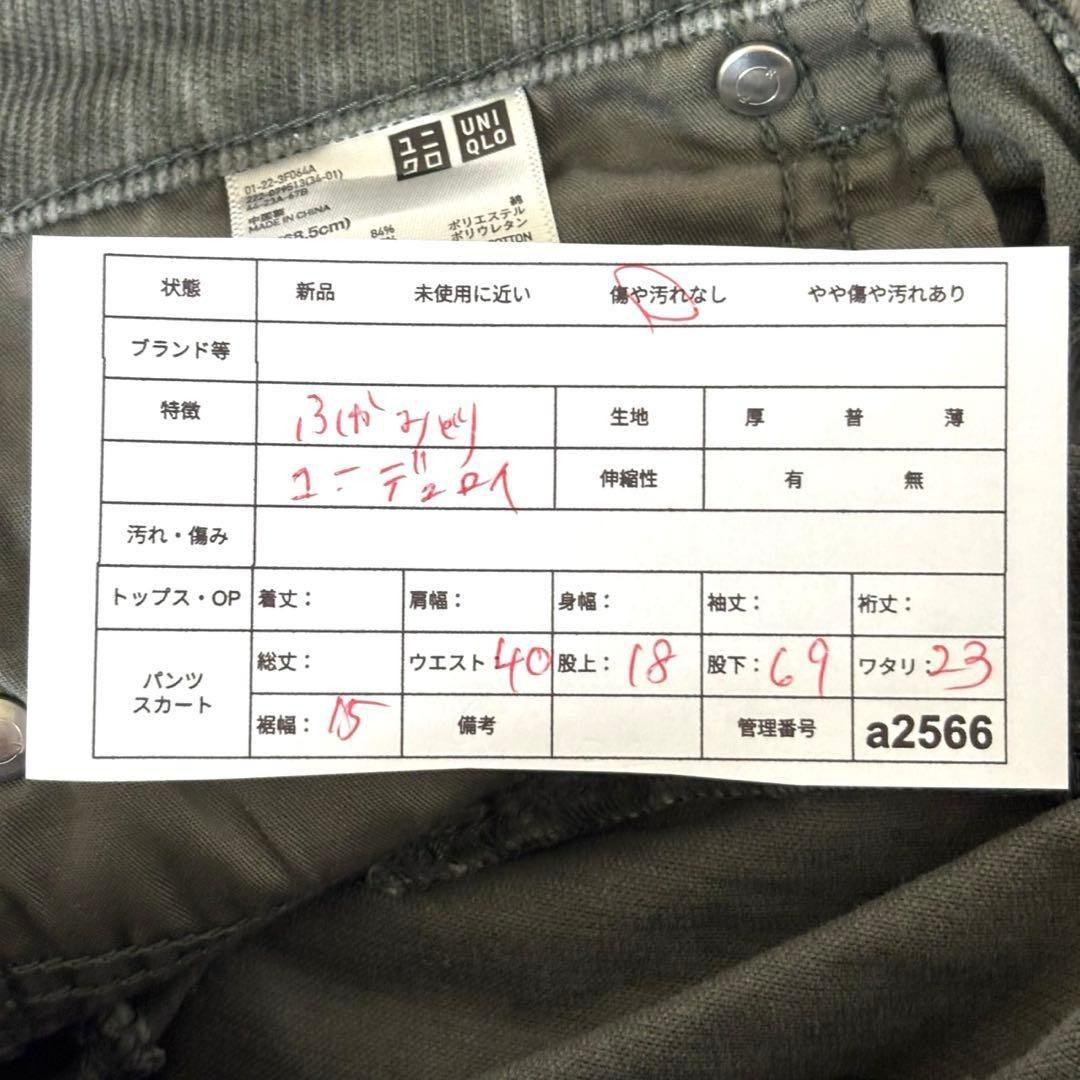 ユニクロ UNIQLO
01-22-3F064A
222-079513(34-01)
中国製
MADE IN CHINA
68.5cm)
84%
綿
ポリエステル
ポリウレタン
COTTON
状態 新品 未使用に近い 傷や汚れなし やや傷や汚れあり
ブランド等
特徴 ふかみどり 生地 厚 普 薄
コーデュロイ 伸縮性 有 無
汚れ・傷み
トップス・OP 着丈： 肩幅： 身幅： 袖丈： 裄丈：
パンツ スカート 総丈： ウエスト：40 股上：18 股下：69 ワタリ：23
裾幅：15 備考 管理番号 a2566